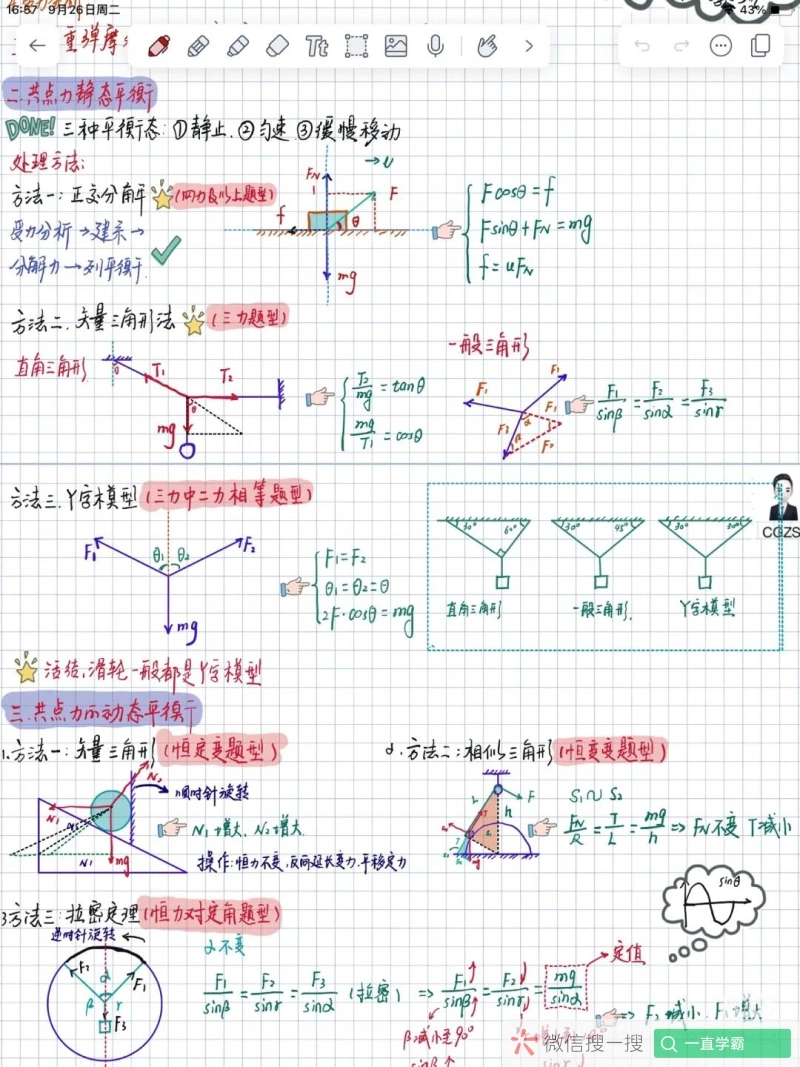 16:57 9月26日周二
43%
Tt
重弹摩
二.共点力静态平衡
DONE! 三种平衡态: ①静止. ②匀速 ③缓慢移动
处理方法:
方法一: 正交分解 (四力及以上题型)
受力分析→建系→
分解力→列平衡
FN
F
f
θ
v
mg
Fcosθ = f
Fsinθ + FN = mg
f = uFN
方法二. 矢量三角形法 (三力题型)
直角三角形
θ
T1
T2
θ
mg
T2/mg = tanθ
mg/T1 = cosθ
一般三角形
F1
F1
F1
F3
F2
α
β
F1/sinβ = F2/sinα = F3/sinr
方法三. Y字模型 (三力中二力相等题型)
F1
θ1
θ2
F2
mg
F1 = F2
θ1 = θ2 = θ
2F·cosθ = mg
30° 60°
30° 45°
30° 30°
直角三角形
一般三角形.
Y字模型
CGZS
活结,滑轮一般都是Y字模型
三.共点力的动态平衡
1.方法一: 矢量三角形 (恒定变题型)
N2
N1
N1
mg
顺时针旋转
N1增大, N2增大.
操作: 恒力不变,反向延长变力.平移定力
2.方法二: 相似三角形 (恒变变题型)
F
L
h
S1∽S2
FN/R = T/L = mg/h ⇒ FN不变 T减小
sinθ
3方法三: 拉密定理 (恒力对定角题型)
逆时针旋转
F2
α
F1
β
r
F3
α不变
F1/sinβ = F2/sinr = F3/sinα (拉密) ⇒ F1↑/sinβ = F2↓/sinr = mg/sinα
定值
⇒ F2减小 F1增大
β减小至90°
sinβ↑
sinr↓
微信搜一搜
一直学霸